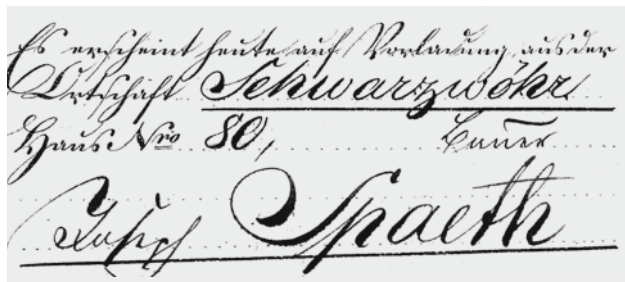 Es erscheint heute auf Vorladung aus der
Ortschaft Schwarzwöhr
Haus Nro 80, Bauer
Joseph Spaeth